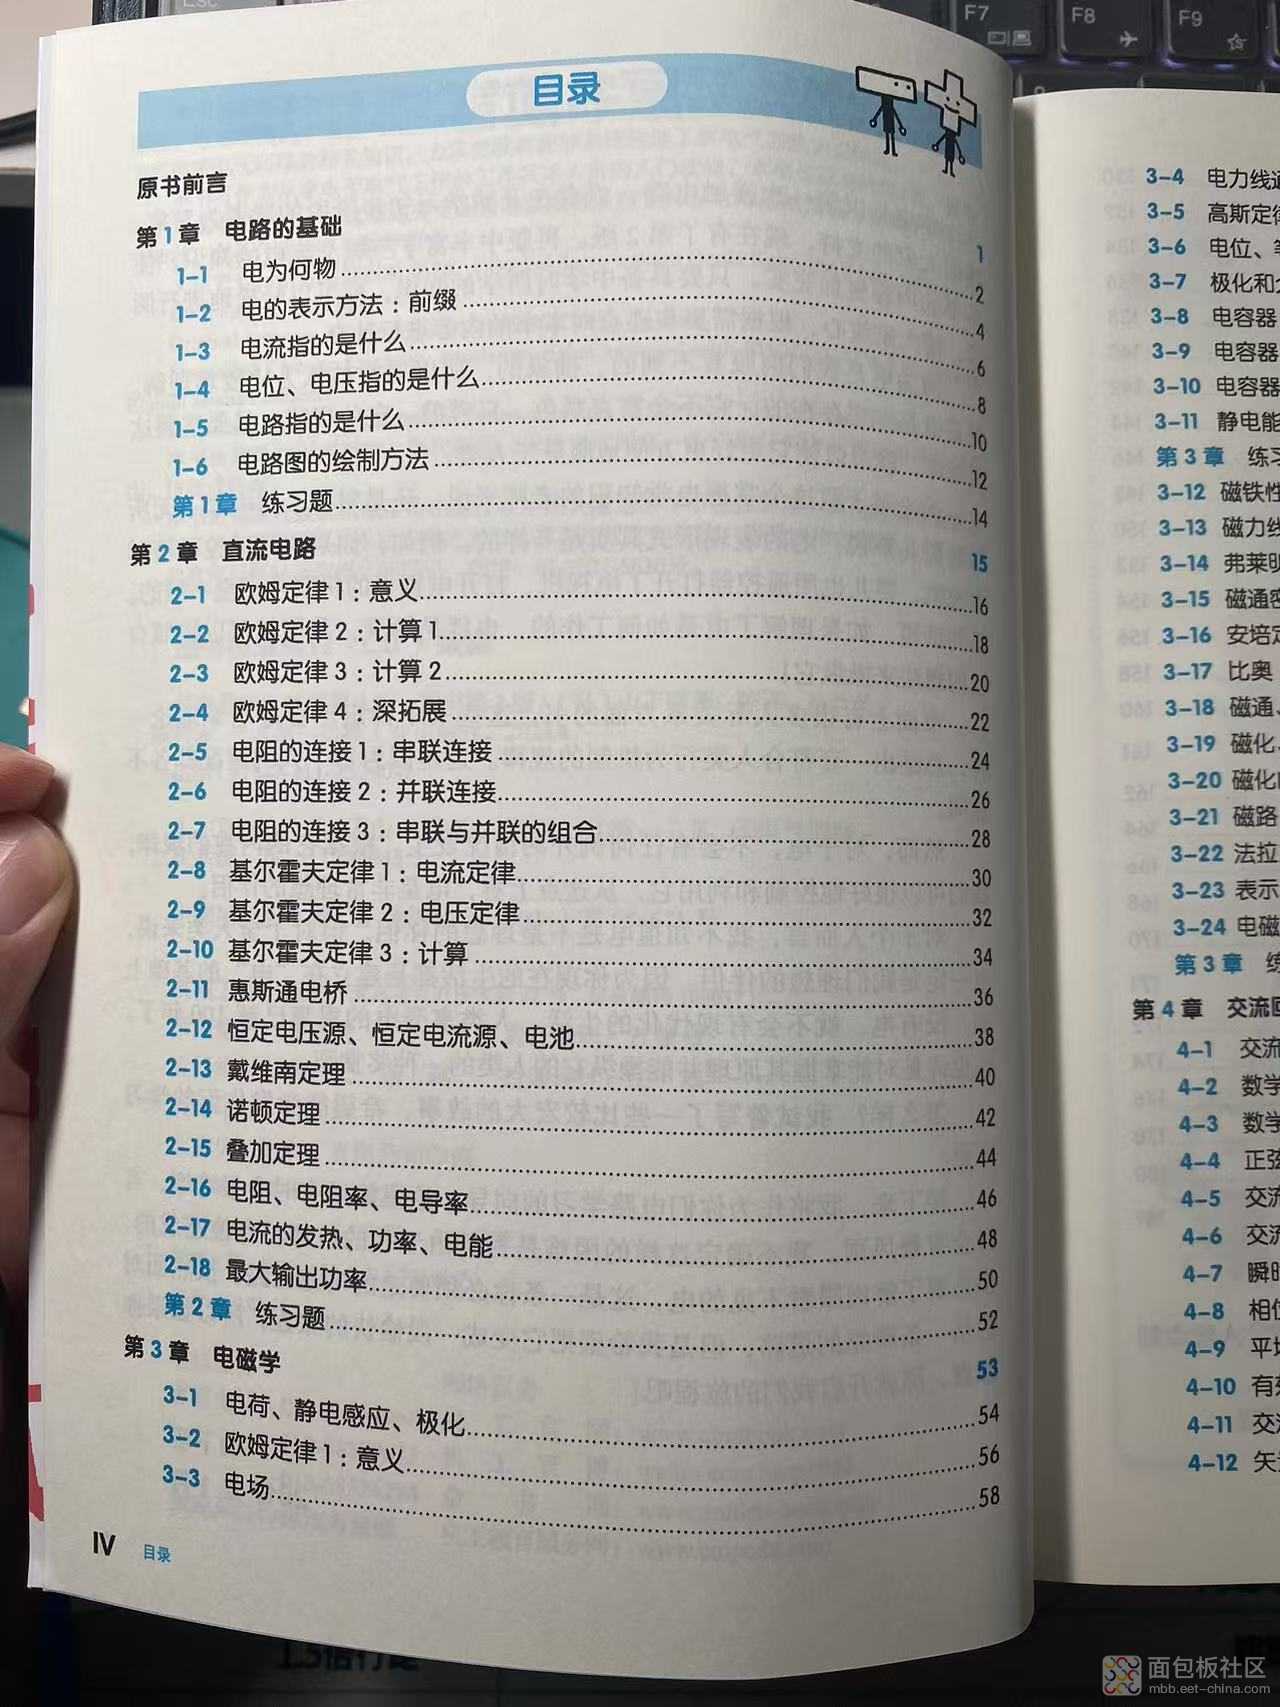 Esc
F7
F8
F9
目录
原书前言
第1章 电路的基础 1
1-1 电为何物 2
1-2 电的表示方法:前缀 4
1-3 电流指的是什么 6
1-4 电位、电压指的是什么 8
1-5 电路指的是什么 10
1-6 电路图的绘制方法 12
第1章 练习题 14
第2章 直流电路 15
2-1 欧姆定律1:意义 16
2-2 欧姆定律2:计算1 18
2-3 欧姆定律3:计算2 20
2-4 欧姆定律4:深拓展 22
2-5 电阻的连接1:串联连接 24
2-6 电阻的连接2:并联连接 26
2-7 电阻的连接3:串联与并联的组合 28
2-8 基尔霍夫定律1:电流定律 30
2-9 基尔霍夫定律2:电压定律 32
2-10 基尔霍夫定律3:计算 34
2-11 惠斯通电桥 36
2-12 恒定电压源、恒定电流源、电池 38
2-13 戴维南定理 40
2-14 诺顿定理 42
2-15 叠加定理 44
2-16 电阻、电阻率、电导率 46
2-17 电流的发热、功率、电能 48
2-18 最大输出功率 50
第2章 练习题 52
第3章 电磁学 53
3-1 电荷、静电感应、极化 54
3-2 欧姆定律1:意义 56
3-3 电场 58
IV 目录
3-4 电力线
3-5 高斯定
3-6 电位、
3-7 极化和
3-8 电容器
3-9 电容器
3-10 电容器
3-11 静电能
第3章 练
3-12 磁铁
3-13 磁力
3-14 弗莱
3-15 磁通
3-16 安培
3-17 比奥
3-18 磁通、
3-19 磁化、
3-20 磁化
3-21 磁路
3-22 法拉
3-23 表示
3-24 电磁
第3章
第4章 交流
4-1 交流
4-2 数学
4-3 数学
4-4 正弦
4-5 交流
4-6 交流
4-7 瞬
4-8 相位
4-9 平
4-10 有
4-11 交
4-12 矢
面包板社区
mbb.eet-china.com